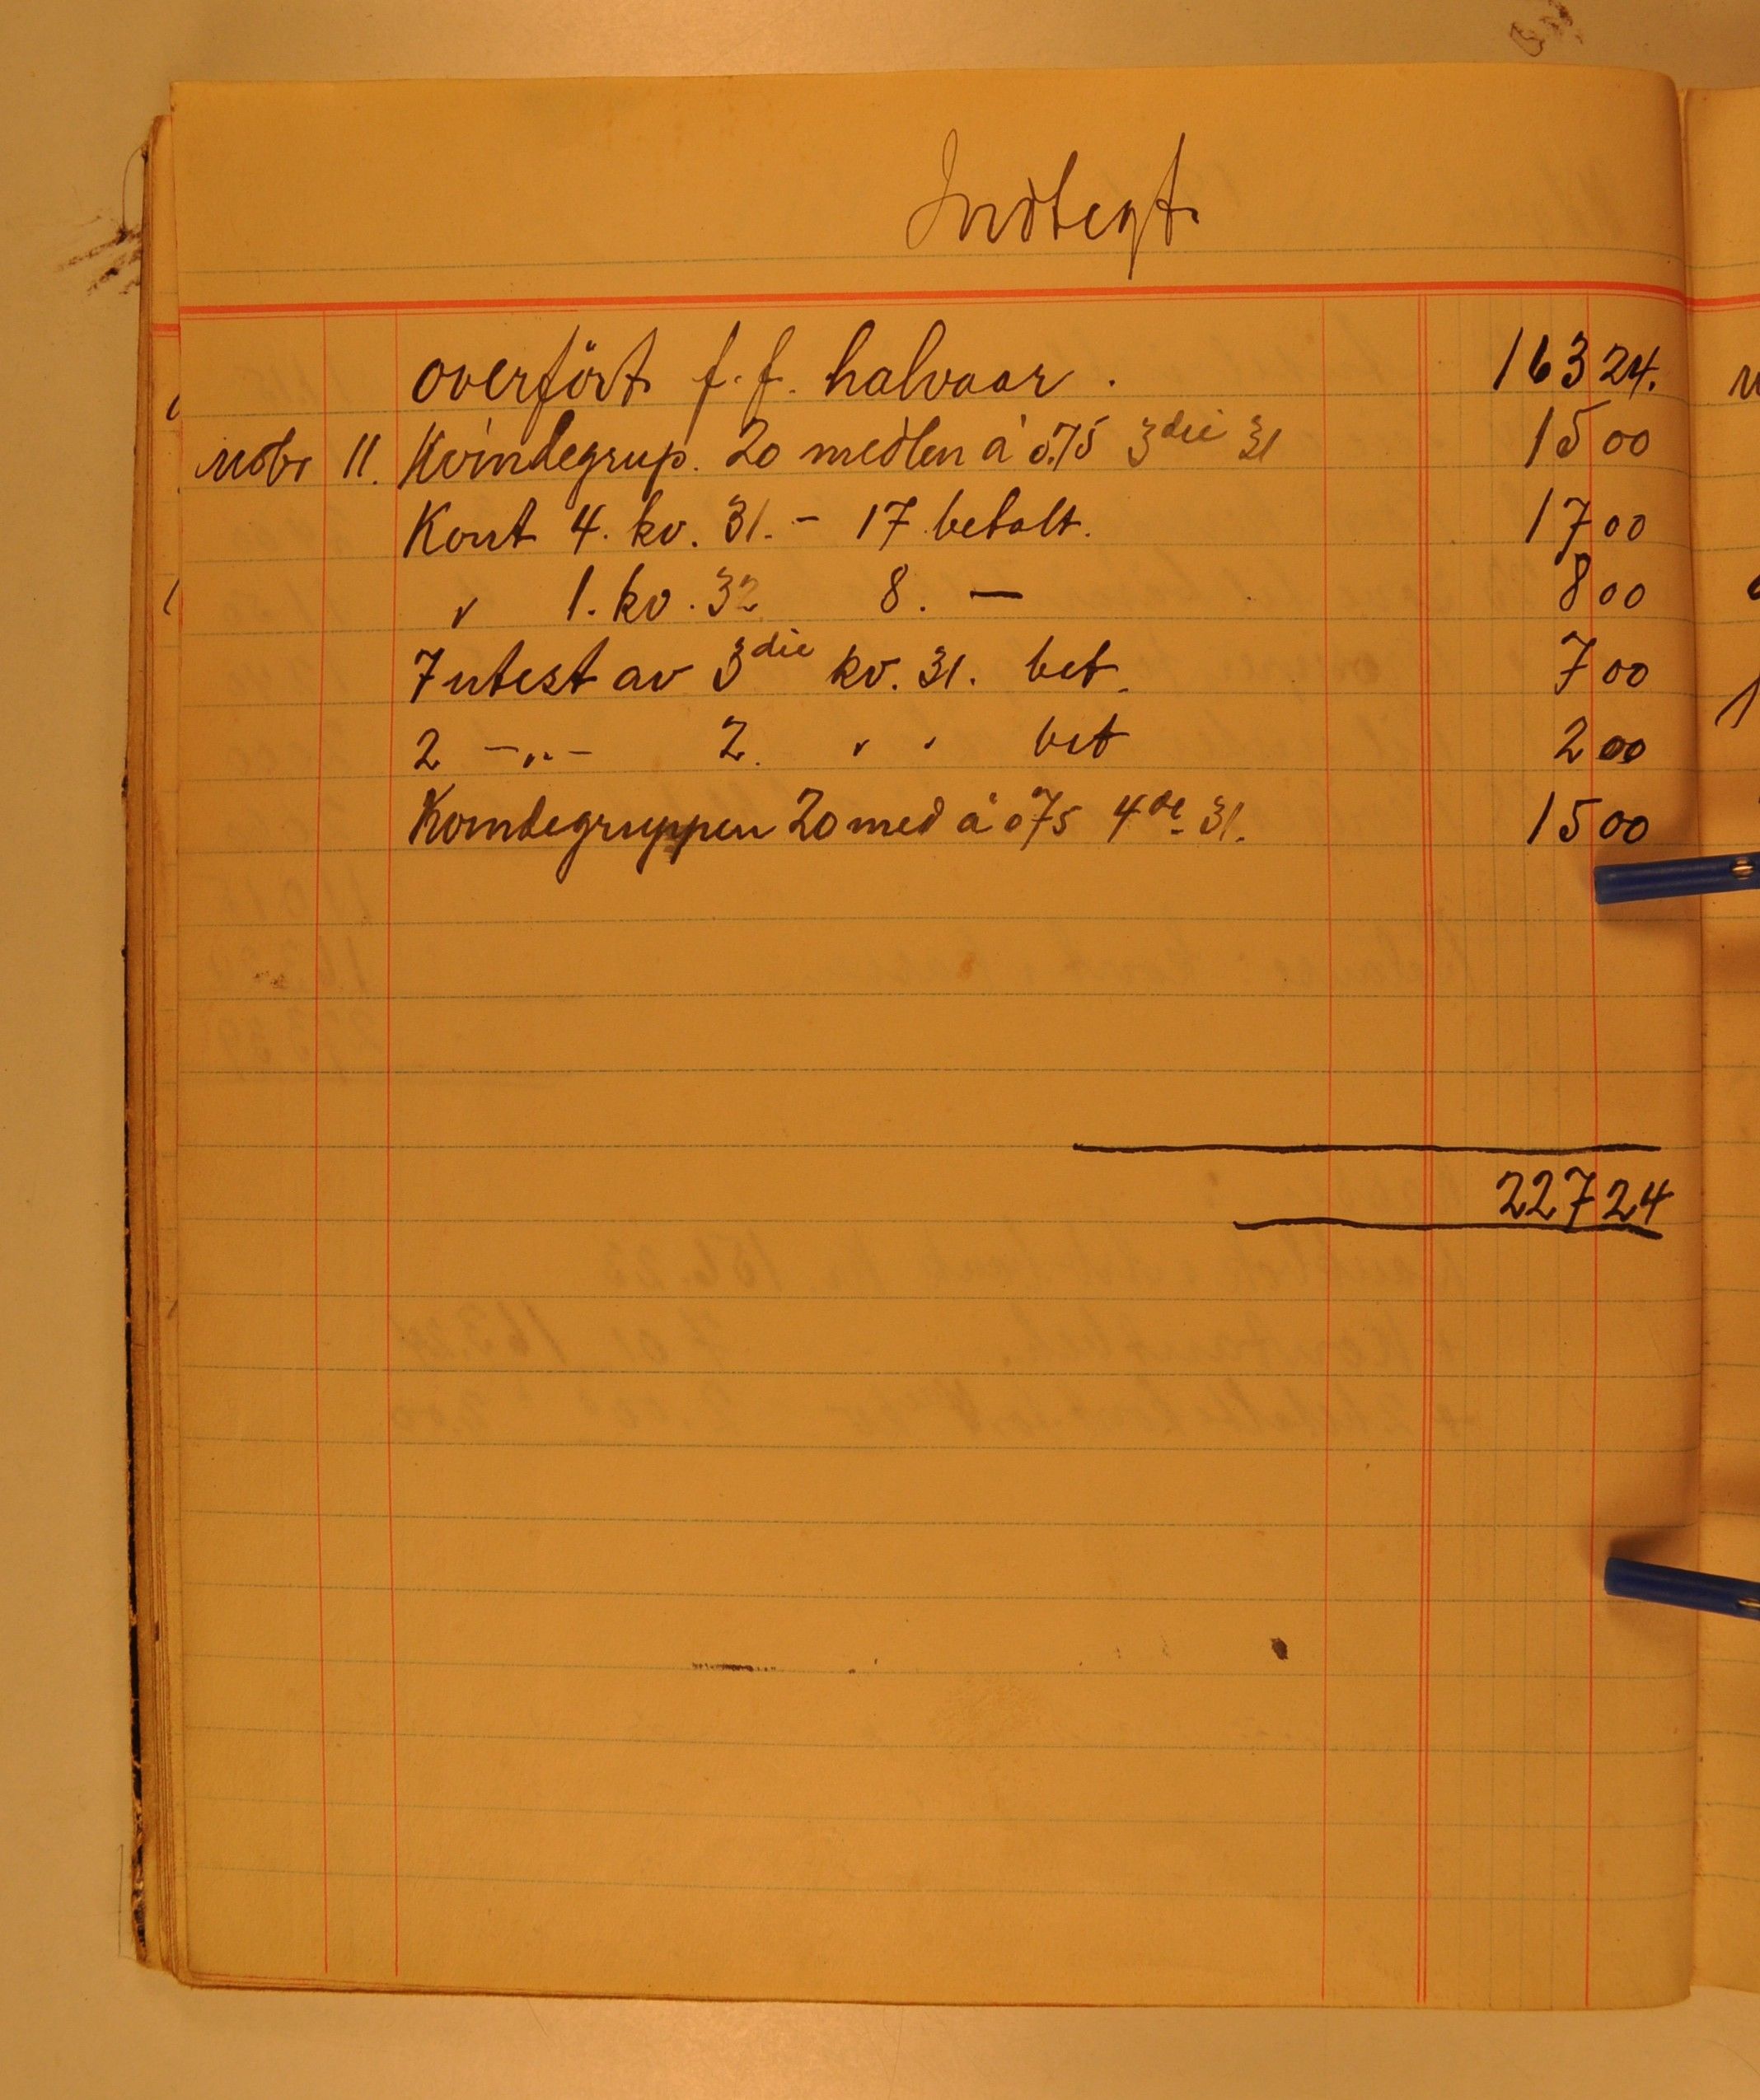 Indtegt.
overført f. f. halvaar. 163 24.
Novbr 11. Kvindegrup. 20 medlem à 0.75 3die 31 15 00
Kont 4. kv. 31. - 17 betalt. 17 00
" 1. kv. 32 8. — 8 00
7 utest av 3die kv. 31. bet. 7 00
2 -"- 2. " " bet 2 00
Kvindegruppen 20 med à 075 4de 31. 15 00
227 24